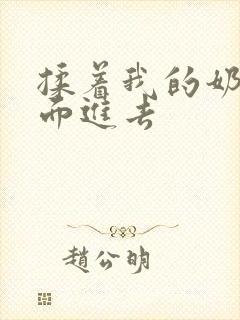 揉着我的奶
而進去
趙公明